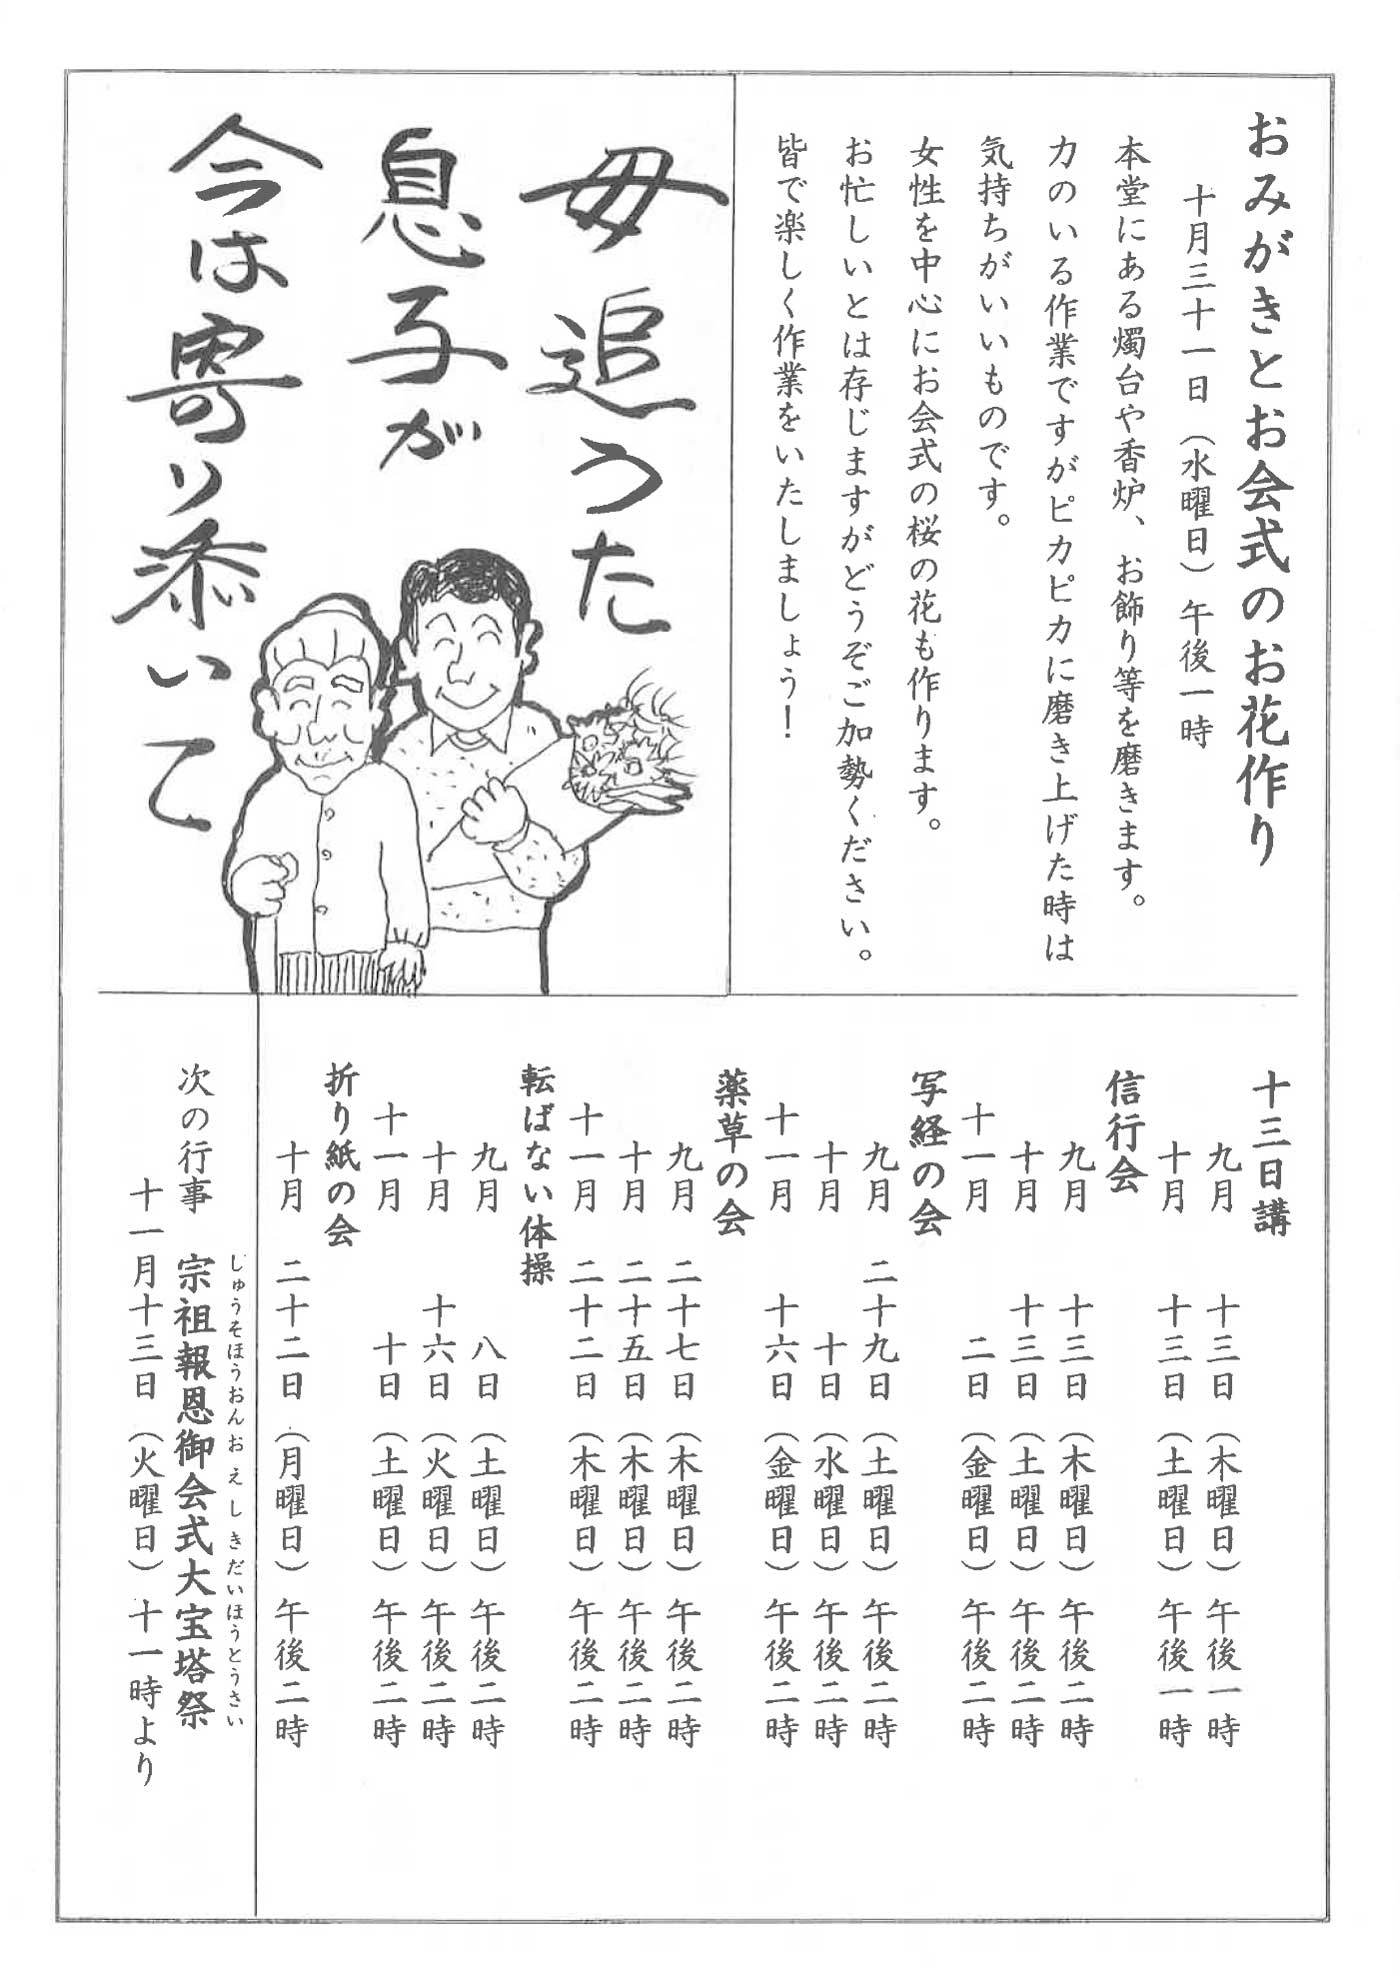 おみがきとお会式のお花作り
十月三十一日（水曜日）午後一時
本堂にある燭台や香炉、お飾り等を磨きます。
力のいる作業ですがピカピカに磨き上げた時は
気持ちがいいものです。
女性を中心にお会式の桜の花も作ります。
お忙しいとは存じますがどうぞご加勢ください。
皆で楽しく作業をいたしましょう！
母追うた
息子が
今は寄り添いて
十三日講
九月　十三日（木曜日）午後一時
十月　十三日（土曜日）午後一時
信行会
九月　十三日（木曜日）午後二時
十月　十三日（土曜日）午後二時
十一月　二日（金曜日）午後二時
写経の会
九月　二十九日（土曜日）午後二時
十月　十日（水曜日）午後二時
十一月　十六日（金曜日）午後二時
薬草の会
九月　二十七日（木曜日）午後二時
十月　二十五日（木曜日）午後二時
十一月　二十二日（木曜日）午後二時
転ばない体操
九月　八日（土曜日）午後二時
十月　十六日（火曜日）午後二時
十一月　十日（土曜日）午後二時
折り紙の会
十月　二十二日（月曜日）午後二時
しゅうそほうおんおえしきだいほうとうさい
次の行事　宗祖報恩御会式大宝塔祭
十一月十三日（火曜日）十一時より